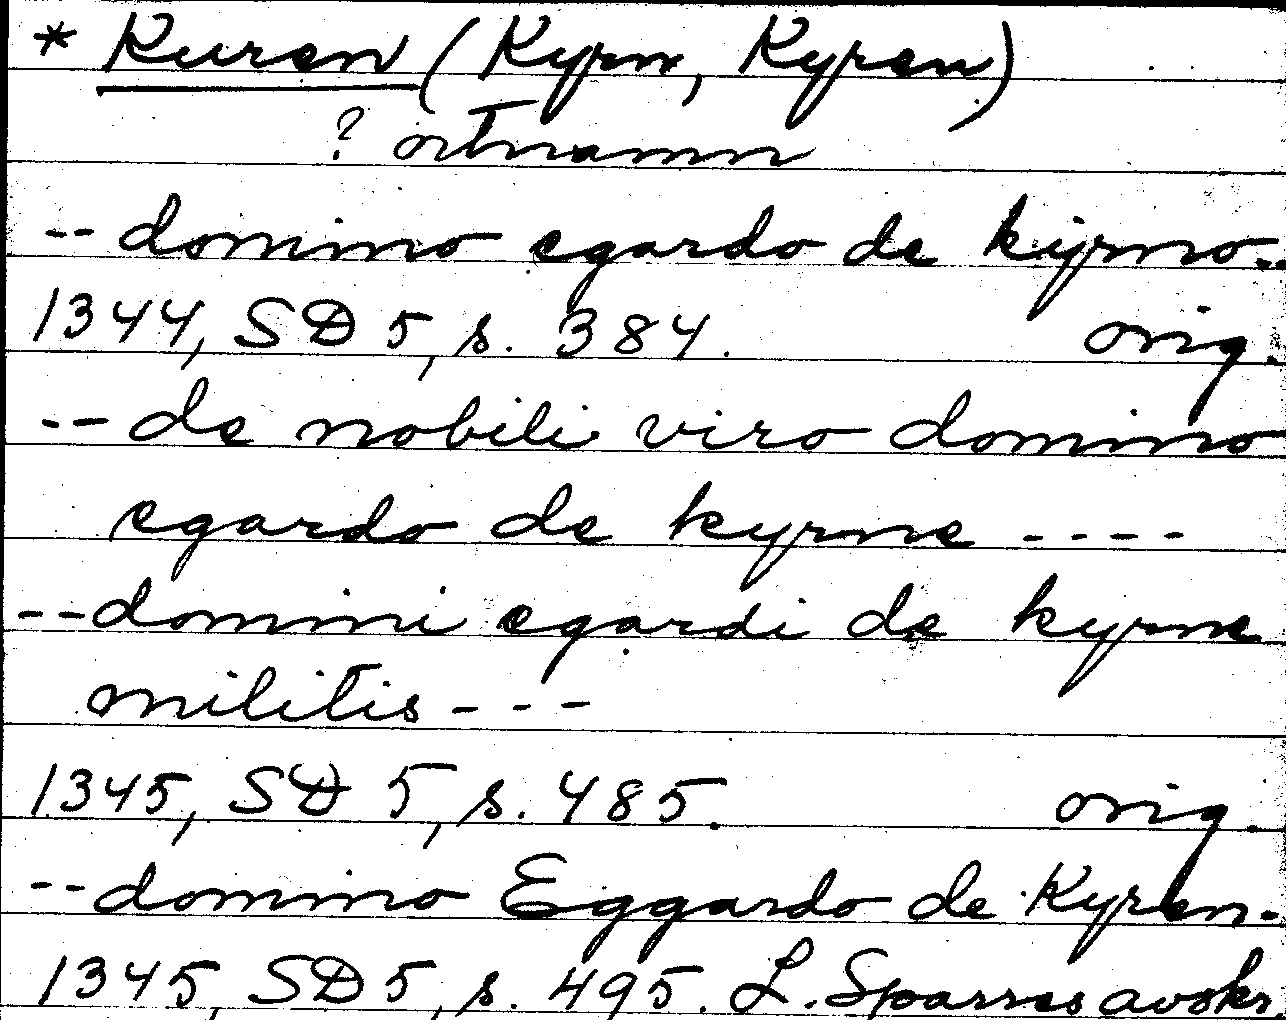 * Kuren (Kyrn, Kyren)
? ortnamn
-- domino egardo de kyrno..
1344, SD 5, s. 384. orig.
-- de nobili viro domino
egardo de kyrne ----
-- domini egardi de kyrne
militis ---
1345, SD 5, s. 485. orig.
-- domino Eggardo de Kyren.
1345, SD 5, s. 495. L. Sparres avskr.